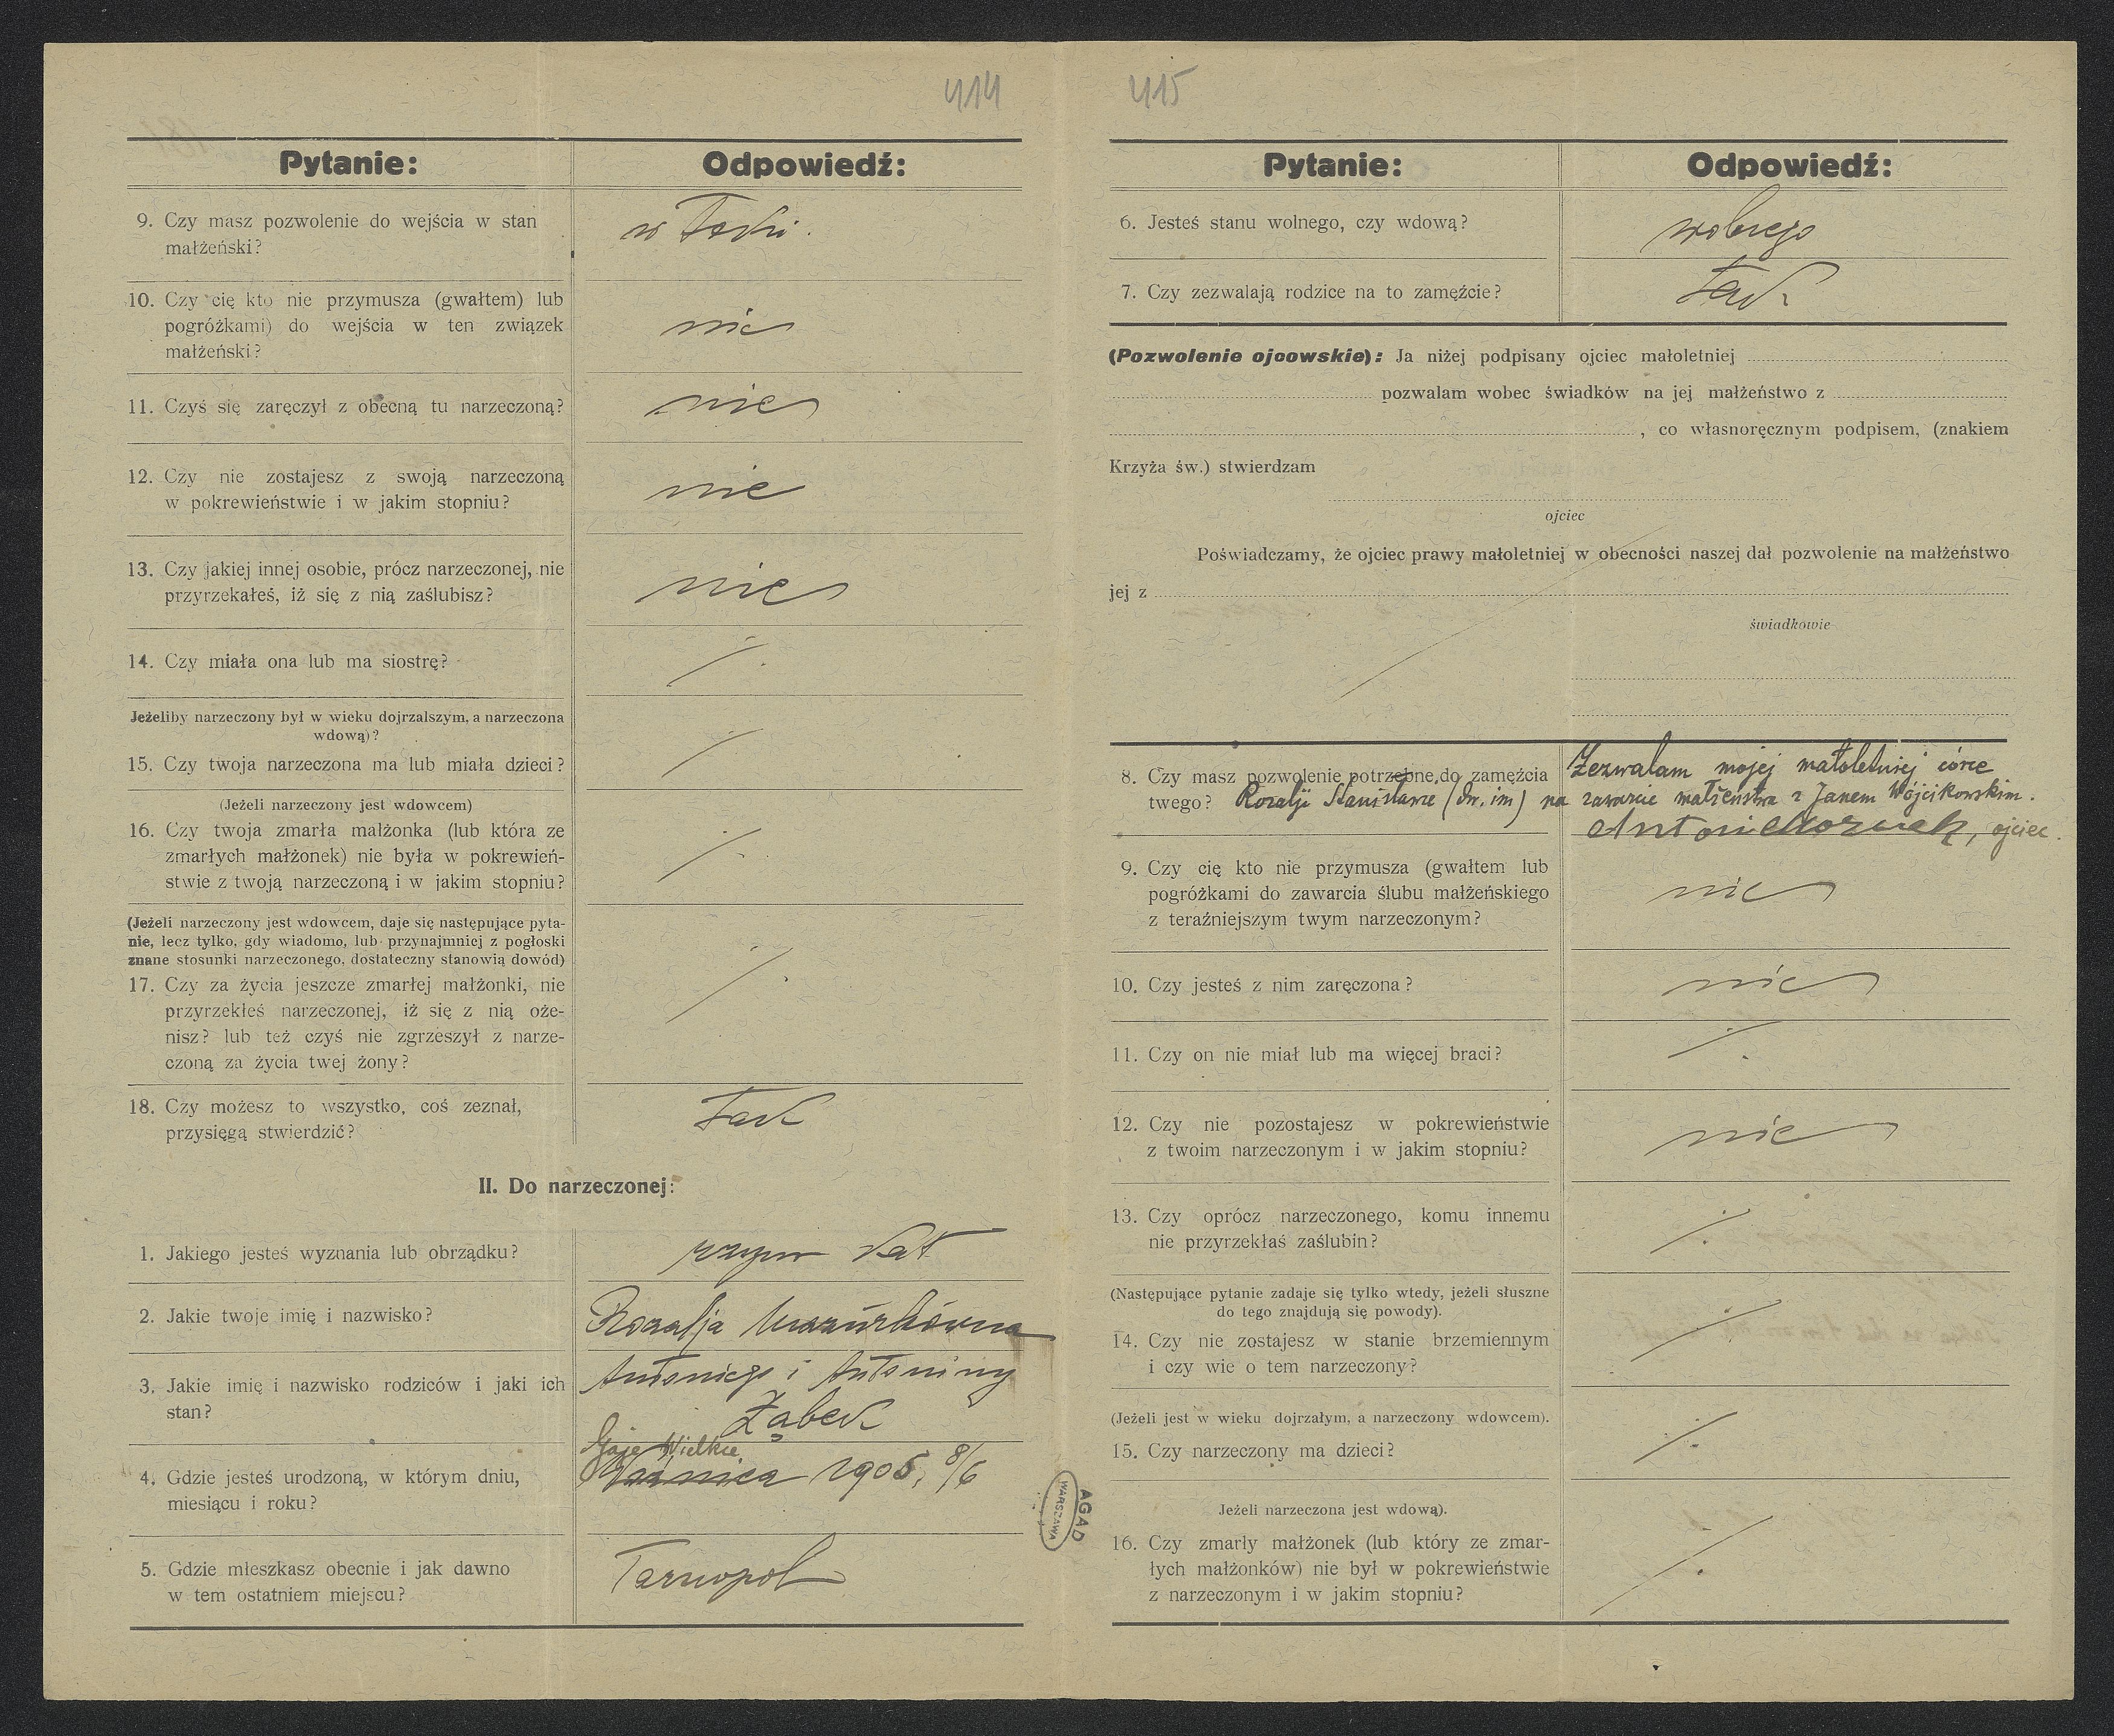 414
Pytanie: Odpowiedź:
9. Czy masz pozwolenie do wejścia w stan
małżeński?
w
10. Czy cię kto nie przymusza (gwałtem) lub
pogróżkami) do wejścia w ten związek
małżeński?
nie
11. Czyś się zaręczył z obecną tu narzeczoną?
nie
12. Czy nie zostajesz z swoją narzeczoną
w pokrewieństwie i w jakim stopniu?
nie
13. Czy jakiej innej osobie, prócz narzeczonej, nie
przyrzekałeś, iż się z nią zaślubisz?
nie
14. Czy miała ona lub ma siostrę?
Jeżeliby narzeczony był w wieku dojrzalszym, a narzeczona
wdową)?
15. Czy twoja narzeczona ma lub miała dzieci?
(Jeżeli narzeczony jest wdowcem)
16. Czy twoja zmarła małżonka (lub która ze
zmarłych małżonek) nie była w pokrewień-
stwie z twoją narzeczoną i w jakim stopniu?
(Jeżeli narzeczony jest wdowcem, daje się następujące pyta-
nie, lecz tylko, gdy wiadomo, lub przynajmniej z pogłoski
znane stosunki narzeczonego, dostateczny stanowią dowód)
17. Czy za życia jeszcze zmarłej małżonki, nie
przyrzekłeś narzeczonej, iż się z nią oże-
nisz? lub też czyś nie zgrzeszył z narze-
czoną za życia twej żony?
18. Czy możesz to wszystko, coś zeznał,
przysięgą stwierdzić?
tak
II. Do narzeczonej:
1. Jakiego jesteś wyznania lub obrządku?
rzym kat
2. Jakie twoje imię i nazwisko?
Rozalja Mazurkówna
3. Jakie imię i nazwisko rodziców i jaki ich
stan?
Antoniego i Antoniny
Ząbek
4. Gdzie jesteś urodzoną, w którym dniu,
miesiącu i roku?
Gaje Wielkie
1905, 8/6
5. Gdzie mieszkasz obecnie i jak dawno
w tem ostatniem miejscu?
Tarnopol
AGAD
WARSZAWA
415
Pytanie: Odpowiedź:
6. Jesteś stanu wolnego, czy wdową?
wolnego
7. Czy zezwalają rodzice na to zamęźcie?
tak
(Pozwolenie ojcowskie): Ja niżej podpisany ojciec małoletniej
pozwalam wobec świadków na jej małżeństwo z
, co własnoręcznym podpisem, (znakiem
Krzyża św.) stwierdzam
ojciec
Poświadczamy, że ojciec prawy małoletniej w obecności naszej dał pozwolenie na małżeństwo
jej z
świadkowie
8. Czy masz pozwolenie potrzebne do zamężcia
twego?
Zezwalam mojej małoletniej córce
Rozalji Stanisławie (dw. im) na zawarcie małżeństwa z Janem Wójcikowskim.
Antoni Mazurek, ojciec.
9. Czy cię kto nie przymusza (gwałtem lub
pogróżkami do zawarcia ślubu małżeńskiego
z teraźniejszym twym narzeczonym?
nie
10. Czy jesteś z nim zaręczona?
nie
11. Czy on nie miał lub ma więcej braci?
12. Czy nie pozostajesz w pokrewieństwie
z twoim narzeczonym i w jakim stopniu?
nie
13. Czy oprócz narzeczonego, komu innemu
nie przyrzekłaś zaślubin?
(Następujące pytanie zadaje się tylko wtedy, jeżeli słuszne
do tego znajdują się powody).
14. Czy nie zostajesz w stanie brzemiennym
i czy wie o tem narzeczony?
(Jeżeli jest w wieku dojrzałym, a narzeczony wdowcem).
15. Czy narzeczony ma dzieci?
Jeżeli narzeczona jest wdową).
16. Czy zmarły małżonek (lub który ze zmar-
łych małżonków) nie był w pokrewieństwie
z narzeczonym i w jakim stopniu?